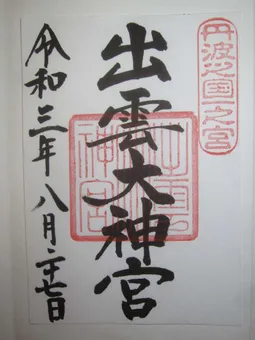 丹波之国一之宮
出雲大神宮
令和三年八月二十七日